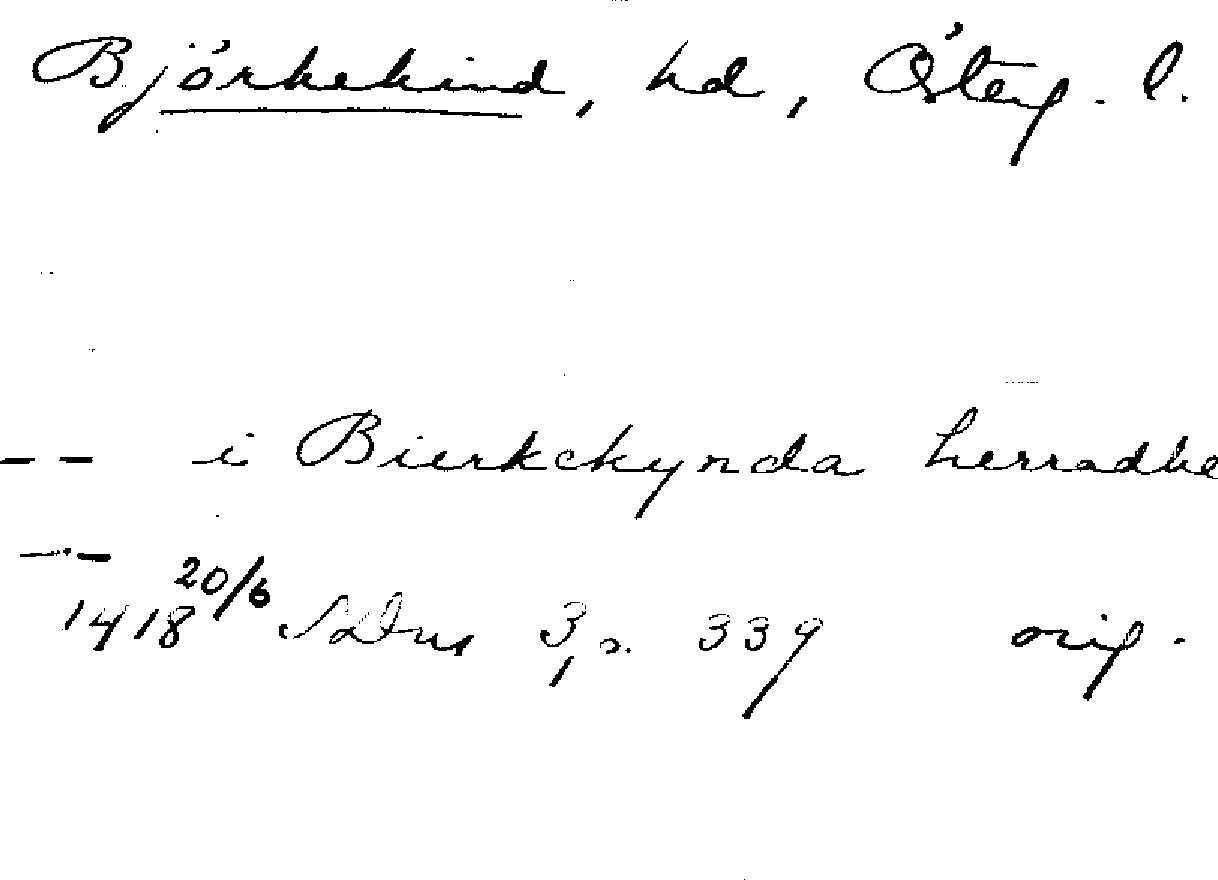 Björkekind, hd, Österg. l.
-- i Bierkekynda herradhe
--
1418 20/6 SDns 3, s. 339 orig.